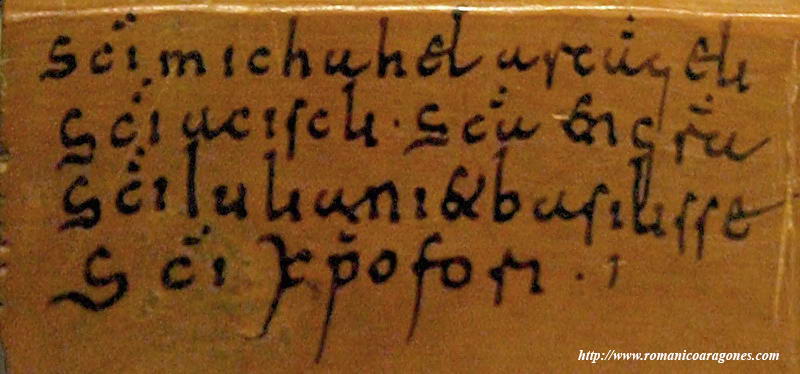 Sc̃i michahel arcãgeli
Sc̃i aciscli · Sc̃a engr̃a
Sc̃i iuliani & basilisse
Sc̃i xp̃ofori ·
http://www.romanicoaragones.com